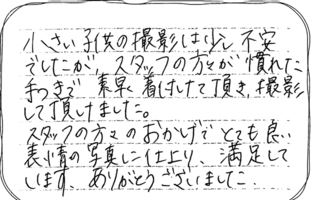 小さい子供の撮影は少し不安
でしたが、スタッフの方々が慣れた
手つきで素早く着付して頂き、撮影
して頂けました。
スタッフの方々のおかげでとても良い
表情の写真に仕上り、満足して
います。ありがとうございました。